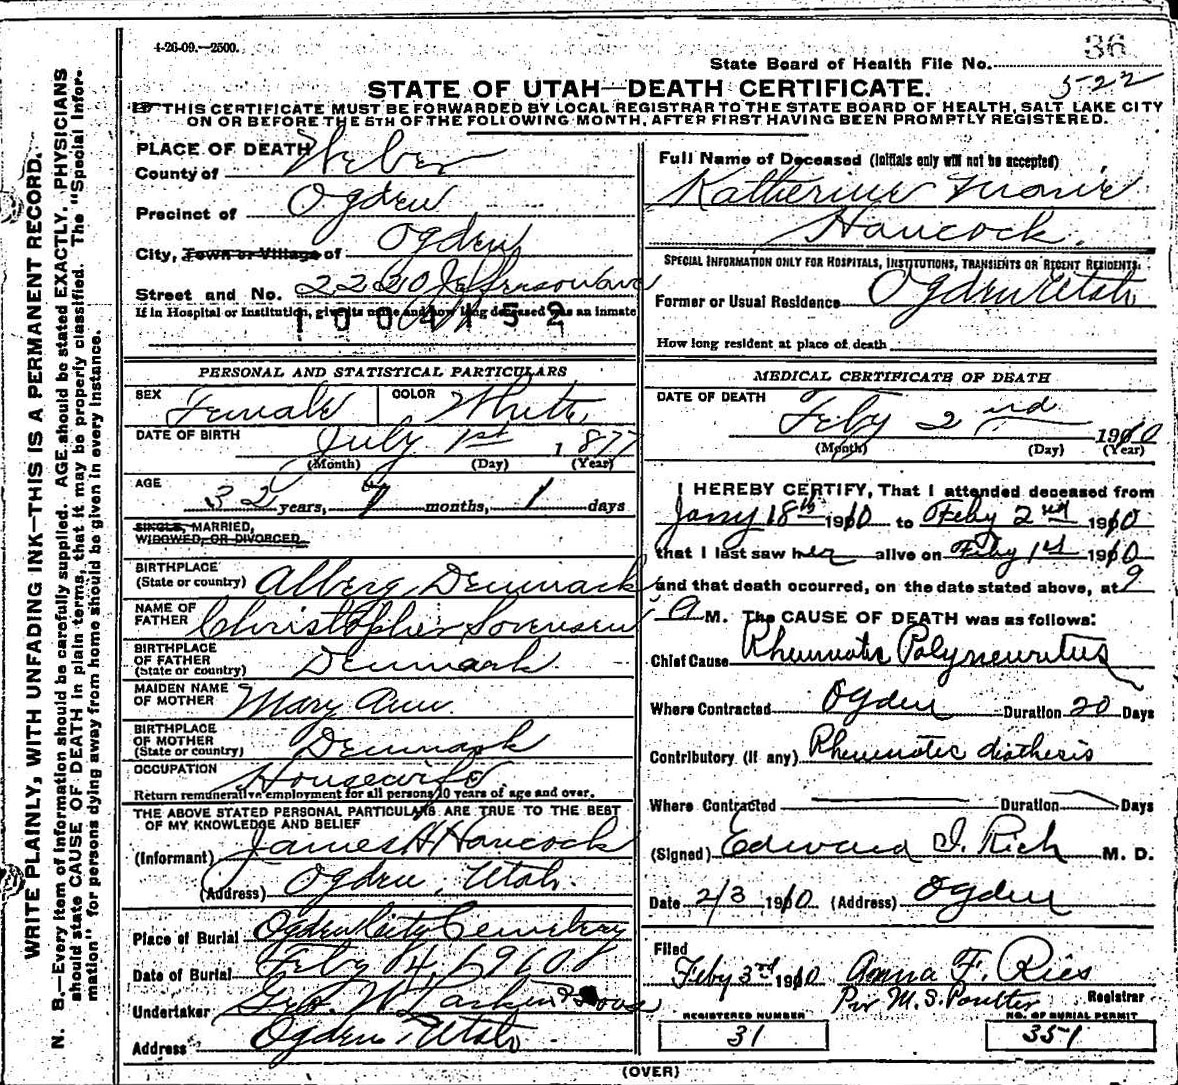 4-26-09.—2500.
36
State Board of Health File No.
522
STATE OF UTAH—DEATH CERTIFICATE.
THIS CERTIFICATE MUST BE FORWARDED BY LOCAL REGISTRAR TO THE STATE BOARD OF HEALTH, SALT LAKE CITY
ON OR BEFORE THE 5TH OF THE FOLLOWING MONTH, AFTER FIRST HAVING BEEN PROMPTLY REGISTERED.
WRITE PLAINLY, WITH UNFADING INK—THIS IS A PERMANENT RECORD.
N. B.—Every item of information should be carefully supplied. AGE should be stated EXACTLY. PHYSICIANS
should state CAUSE OF DEATH in plain terms, that it may be properly classified. The "Special Infor-
mation" for persons dying away from home should be given in every instance.
PLACE OF DEATH
County of Weber
Precinct of Ogden
City, Town or Village of Ogden
Street and No. 2230 Jefferson Ave
If in Hospital or Institution, give its name and how long deceased was an inmate
1004152
PERSONAL AND STATISTICAL PARTICULARS
SEX Female COLOR White
DATE OF BIRTH July 1st 1877
(Month) (Day) (Year)
AGE 32 years, 7 months, 1 days
SINGLE, MARRIED,
WIDOWED, OR DIVORCED
BIRTHPLACE
(State or country) Alberg Denmark
NAME OF
FATHER Christopher Sorensen
BIRTHPLACE
OF FATHER
(State or country) Denmark
MAIDEN NAME
OF MOTHER Mary Ann.
BIRTHPLACE
OF MOTHER
(State or country) Denmark
OCCUPATION Housewife
Return remunerative employment for all persons 10 years of age and over.
THE ABOVE STATED PERSONAL PARTICULARS ARE TRUE TO THE BEST
OF MY KNOWLEDGE AND BELIEF
(Informant) James H Hancock
(Address) Ogden, Utah.
Place of Burial Ogden City Cemetery
Date of Burial Feby 4,
Undertaker Geo. W. Larkin & Sons
Address Ogden Utah
Full Name of Deceased (Initials only will not be accepted)
Katherine
Hancock.
SPECIAL INFORMATION ONLY FOR HOSPITALS, INSTITUTIONS, TRANSIENTS OR RECENT RESIDENTS.
Former or Usual Residence Ogden Utah
How long resident at place of death
MEDICAL CERTIFICATE OF DEATH
DATE OF DEATH Feby 2nd 1910
(Month) (Day) (Year)
I HEREBY CERTIFY, That I attended deceased from
Jany 18th 1910 to Feby 2nd 1910
that I last saw her alive on Feby 1st 1910
and that death occurred, on the date stated above, at 9
a M. The CAUSE OF DEATH was as follows:
Chief Cause Rheumatic Polyneuritis
Where Contracted Ogden Duration 20 Days
Contributory (if any) Rheumatic diathesis
Where Contracted Duration Days
(Signed) Edward I. Rich M. D.
Date 2/3 1910 (Address) Ogden
Filed
Feby 3rd 1910 Anna F. Ries
Per M. S. Poulter Registrar
REGISTERED NUMBER
31
NO. OF BURIAL PERMIT
351
(OVER)